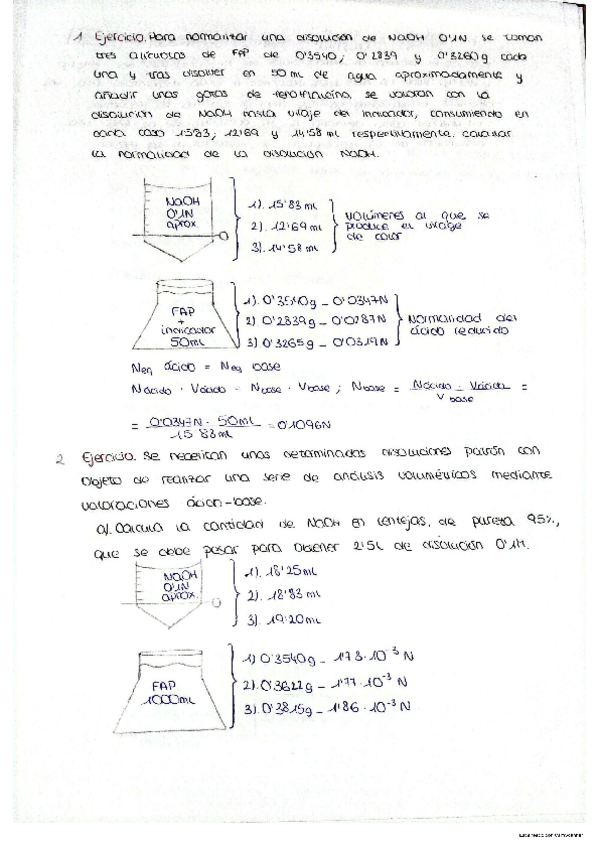 1 Ejercicio. Para normalizar una disolución de NaOH 0'1N se toman
tres alicuotas de FAP de 0'3540; 0'2839 y 0'3260g cada
una y tras disolver en 50 mL de agua aproximadamente y
añadir unas gotas de fenolftaleina, se valoran con la
disolución de NaOH hasta viraje del indicador, consumiendo en
cada caso 15'83; 12'69 y 14'58 mL respectivamente. Calcular
la normalidad de la disolución NaOH.
NaOH
0'1N
aprox.
1). 15'83 mL
2). 12'69 mL
3). 14'58 mL
volúmenes al que se
produce el viraje
de color
FAP
+
indicador
50mL
1). 0'3540g - 0'0347N
2). 0'2839g - 0'0287N
3) 0'3265g - 0'0319N
Normalidad del
ácido reducido
Neq ácido = Neq base
Nácido · Vácido = Nbase · Vbase ; Nbase = Nácido · Vácido =
V base
= 0'0347N · 50mL = 0'1096N
15'83mL
2 Ejercicio. Se necesitan unas determinadas disoluciones patrón con
objeto de realizar una serie de análisis volumétricos mediante
valoraciones ácido-base.
a). Calcula la cantidad de NaOH en lentejas, de pureza 95%,
que se debe pesar para obtener 2'5L de disolución 0'1M.
NaOH
0'1N
aprox.
1). 18'25 mL
2). 18'83 mL
3). 19'20 mL
FAP
1000mL
1) 0'3540g - 1'73·10⁻³ N
2). 0'3622g - 1'77·10⁻³ N
3). 0'3815g - 1'86·10⁻³ N